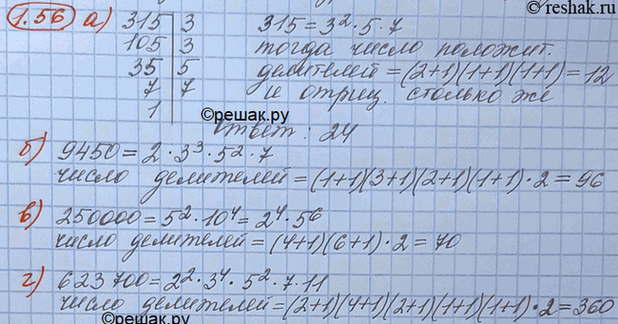 ©reshak.ru
1.56 а) 315 | 3 315 = 3²·5·7
105 | 3 тогда число положит.
35 | 5 делителей = (2+1)(1+1)(1+1) = 12
7 | 7 и отриц. столько же
1
©решак.ру
Ответ: 24
б) 9450 = 2·3³·5²·7
число делителей = (1+1)(3+1)(2+1)(1+1)·2 = 96
в) 250000 = 5²·10⁴ = 2⁴·5⁶
©решак.ру
число делителей = (4+1)(6+1)·2 = 70
г) 623700 = 2²·3⁴·5²·7·11
число делителей = (2+1)(4+1)(2+1)(1+1)(1+1)·2 = 360